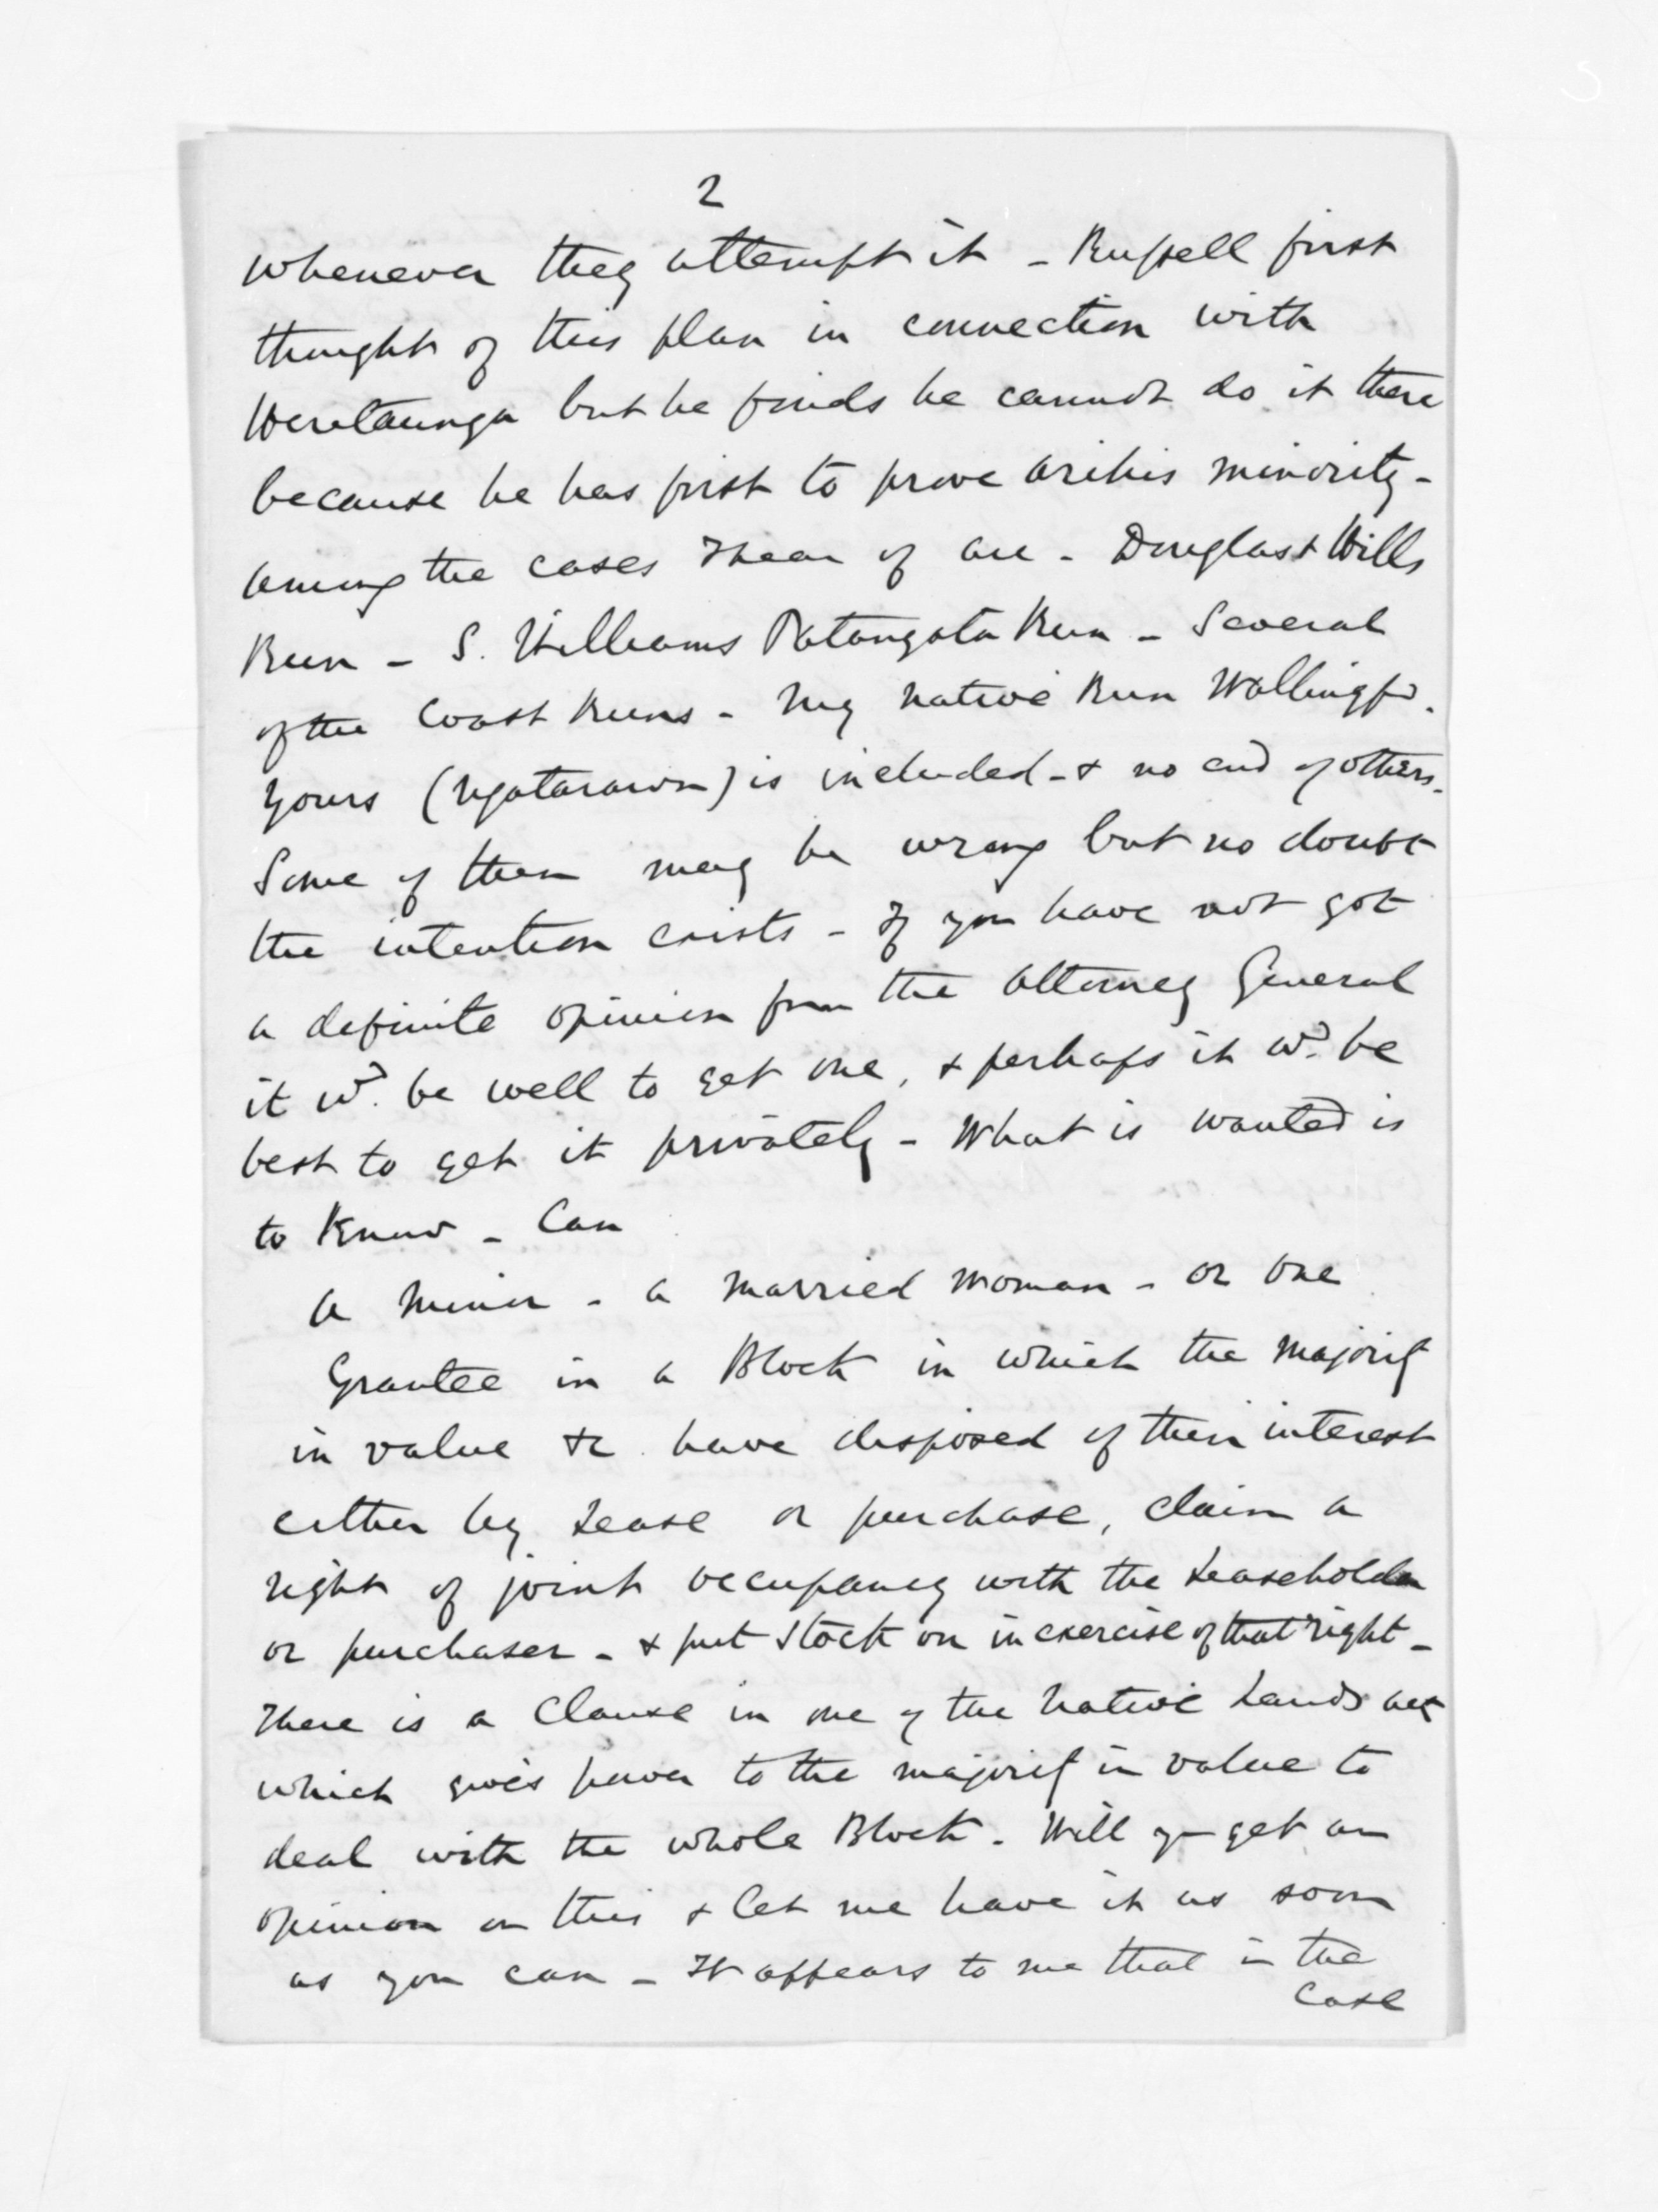 2
whenever they attempt it - Russell first
thought of this plan in connection with
Heretaunga but he finds he cannot do it there
because he has first to prove Arihis minority -
Among the cases I hear of are - Douglas & Hills
Run - S. Williams Patangata Run - Several
of the Coast Runs - My native Run Wallingfd.
Yours (Ngatarawa) is included - & no end of others.
Some of them may be wrong but no doubt
the intention exists - If you have not got
a definite opinion from the Attorney General
it wd. be well to get one, & perhaps it wd. be
best to get it privately - What is wanted is
to Know - Can
A Minor - a Married Woman - or one
Grantee in a Block in which the Majority
in value &c have disposed of their interest
either by Lease or purchase, claim a
right of joint occupancy with the Leaseholder
or purchaser - & put Stock on in exercise of that right -
There is a Clause in one of the Native Lands Act
which gives power to the majority in value to
deal with the whole Block. Will you get an
opinion on this & let me have it as soon
as you can - It appears to me that in the
Case